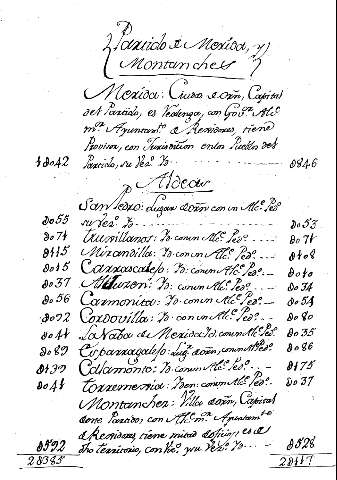 Partido de Merida, y
Montanches
Merida: Ciudad de Orñ, Capital
del Partido, es Realenga, con Gov.ᵒʳ Alc.ᵉ
m.ʳ Ayuntam.ᵗᵒ de Rexidores, tiene
con Jurisdicion en los Pueblos del
1 ∂042 Partido, su Vez.ᵒ Ᵽᵒ ∂846
Aldeas
San Pedro: Lugar de Orñ con un Alc.ᵉ Ped.ᵒ
∂055 su Vez.ᵒ ∂053
∂071 Truxillanos: con un Alc.ᵉ Ped.ᵒ ∂071
∂115 Mirandilla: con un Alc.ᵉ Ped.ᵒ ∂108
∂045 Carrascalejo: con un Alc.ᵉ Ped.ᵒ ∂040
∂037 con un Alc.ᵉ Ped.ᵒ ∂034
∂056 Carmonita: con un Alc.ᵉ Ped.ᵒ ∂054
∂092 Cordovilla: con un Alc.ᵉ Ped.ᵒ ∂080
∂044 La Naba de Merida con un Alc.ᵉ Ped.ᵒ ∂035
∂089 Esparragalejo: Lug.ʳ de Orñ, con un Alc.ᵉ Ped.ᵒ ∂086
∂139 Calamonte: con un Alc.ᵉ Ped.ᵒ ∂175
∂044 Torremexia: con un Alc.ᵉ Ped.ᵒ ∂037
Montanchez: Villa de Orñ, Capital
de Partido, con Alc.ᵉ m.ʳ Ayuntam.ᵗᵒ
de Rexidores, tiene mitad de oficios es de
∂592 dho territorio, con y su Vez.ᵒ ∂528
2∂385 2∂147